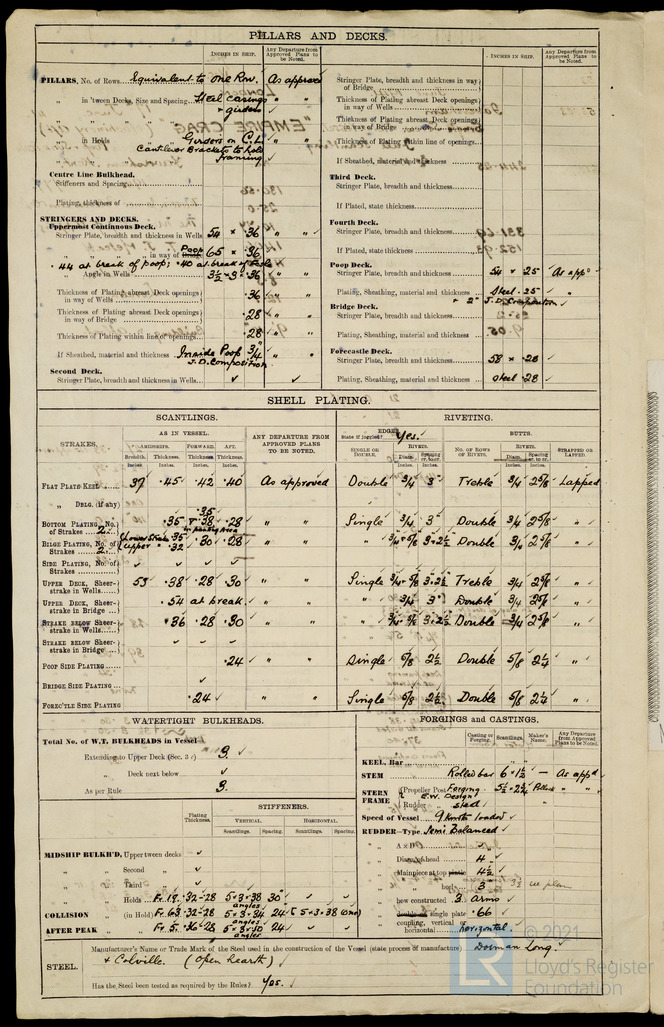 PILLARS AND DECKS.
INCHES IN SHIP.
Any Departure from Approved Plans to be Noted.
PILLARS, No. of Rows Equivalent to one Row. As approved
„ in 'tween Decks, Size and Spacing Steel casings „ „
& girders
„ in Holds Girders on C.L. „ „
Cantilever Brackets to hold framing
Centre Line Bulkhead.
Stiffeners and Spacing
Plating, thickness of
STRINGERS AND DECKS.
Uppermost Continuous Deck.
Stringer Plate, breadth and thickness in Wells 54 × .36 „ „
„ „ in way of Poop 65 × .36 „
.44 at break of poop; .40 at break of Fo'c'le
„ Angle in Wells 3½ × 3 × .36 „ „
Thickness of Plating abreast Deck openings in way of Wells .36 „ „
Thickness of Plating abreast Deck openings in way of Bridge .28 „ „
Thickness of Plating within line of openings .28 „ „
If Sheathed, material and thickness Inside Poop 3/4 „ „
J.D. Composition
Second Deck.
Stringer Plate, breadth and thickness in Wells ✓ ✓
INCHES IN SHIP.
Any Departure from Approved Plans to be Noted.
Stringer Plate, breadth and thickness in way of Bridge
Thickness of Plating abreast Deck openings in way of Wells
Thickness of Plating abreast Deck openings in way of Bridge
Thickness of Plating within line of openings
If Sheathed, material and thickness
Third Deck.
Stringer Plate, breadth and thickness
If Plated, state thickness
Fourth Deck.
Stringer Plate, breadth and thickness
If Plated, state thickness
Poop Deck.
Stringer Plate, breadth and thickness 54 × .25 As appd
Plating, Sheathing, material and thickness Steel .25
+ 2" J.D. Composition
Bridge Deck.
Stringer Plate, breadth and thickness
Plating, Sheathing, material and thickness
Forecastle Deck.
Stringer Plate, breadth and thickness 58 × .28
Plating, Sheathing, material and thickness Steel .28
SHELL PLATING.
SCANTLINGS.
RIVETING.
STRAKES.
AS IN VESSEL.
AMIDSHIPS. FORWARD. AFT.
Breadth. Thickness. Thickness. Thickness.
Inches. Inches. Inches. Inches.
ANY DEPARTURE FROM APPROVED PLANS TO BE NOTED.
EDGES
State if joggled? Yes.
SINGLE OR DOUBLE.
RIVETS.
Diam. Spacing cr. to cr.
BUTTS.
NO. OF ROWS OF RIVETS.
RIVETS.
Diam. Spacing cr. to cr.
STRAPPED OR LAPPED.
FLAT PLATE KEEL 37 .45 .42 .40 As approved Double 3/4 3 Treble 3/4 2 5/8 Lapped
„ DBLG. (if any)
BOTTOM PLATING, No. of Strakes 2 .35 .35 & .38 in panting area .28 „ „ Single 3/4 3 Double 3/4 2 5/8 „
BILGE PLATING, No. of Strakes 2 Lower Strake .35 upper „ .32 .30 .28 „ „ „ 3/4 & 5/8 3 & 2½ Double 3/4 2 5/8 „
SIDE PLATING, No. of Strakes
UPPER DECK, Sheerstrake in Wells 53 .38 .28 .30 „ „ Single 3/4 & 5/8 3 & 2½ Treble 3/4 2 5/8 „
UPPER DECK, Sheerstrake in Bridge .54 at break. „ „ „ 3/4 3 Double 3/4 2 5/8 „
STRAKE BELOW Sheerstrake in Wells .36 .28 .30 „ 3/4 & 5/8 3 & 2½ Double 3/4 2 5/8 „
STRAKE BELOW Sheerstrake in Bridge
POOP SIDE PLATING .24 „ „ Single 5/8 2½ Double 5/8 2¼ „
BRIDGE SIDE PLATING
FOREC'TLE SIDE PLATING .24 „ „ Single 5/8 2½ Double 5/8 2¼ „
WATERTIGHT BULKHEADS.
Total No. of W.T. BULKHEADS in Vessel
Extending to Upper Deck (Sec. 3 c) 3.
„ Deck next below ✓
As per Rule 3.
STIFFENERS.
Plating Thickness.
VERTICAL. HORIZONTAL.
Scantlings. Spacing. Scantlings. Spacing.
MIDSHIP BULKH'D, Upper tween decks ✓
„ „ Second „ ✓
„ „ Third „ ✓
„ „ Holds Fr. 19. .32-.28 5×3×.38 angles 30
COLLISION „ (in Hold) Fr. 63. .32-.28 5×3×.34 angles 24 (5×3×.38 (one)
AFTER PEAK „ „ Fr. 5. .36-.28 5×3×.30 angles 24
FORGINGS and CASTINGS.
Casting or Forging. Scantlings. Maker's Name. Any Departure from Approved Plans to be Noted.
KEEL, Bar
STEM Rolled bar 6 × 1½ — As appd
STERN FRAME Propeller Post Forging. 5½ × 2¼ „ „
E.W. Design
Rudder „ steel
Speed of Vessel 9 knots loaded
RUDDER—Type Semi Balanced
„ A x D ✓
„ Diam. head 4
„ Mainpiece at top pintle 4½
„ „ heel 3 3½ see plan
„ how constructed 3 Arms
„ double or single plate .66
„ coupling, vertical or horizontal horizontal.
STEEL.
Manufacturer's Name or Trade Mark of the Steel used in the construction of the Vessel (state process of manufacture) Dorman Long.
& Colville. (Open hearth)
Has the Steel been tested as required by the Rules? Yes.
© 2021
LR
Lloyd's Register
Foundation